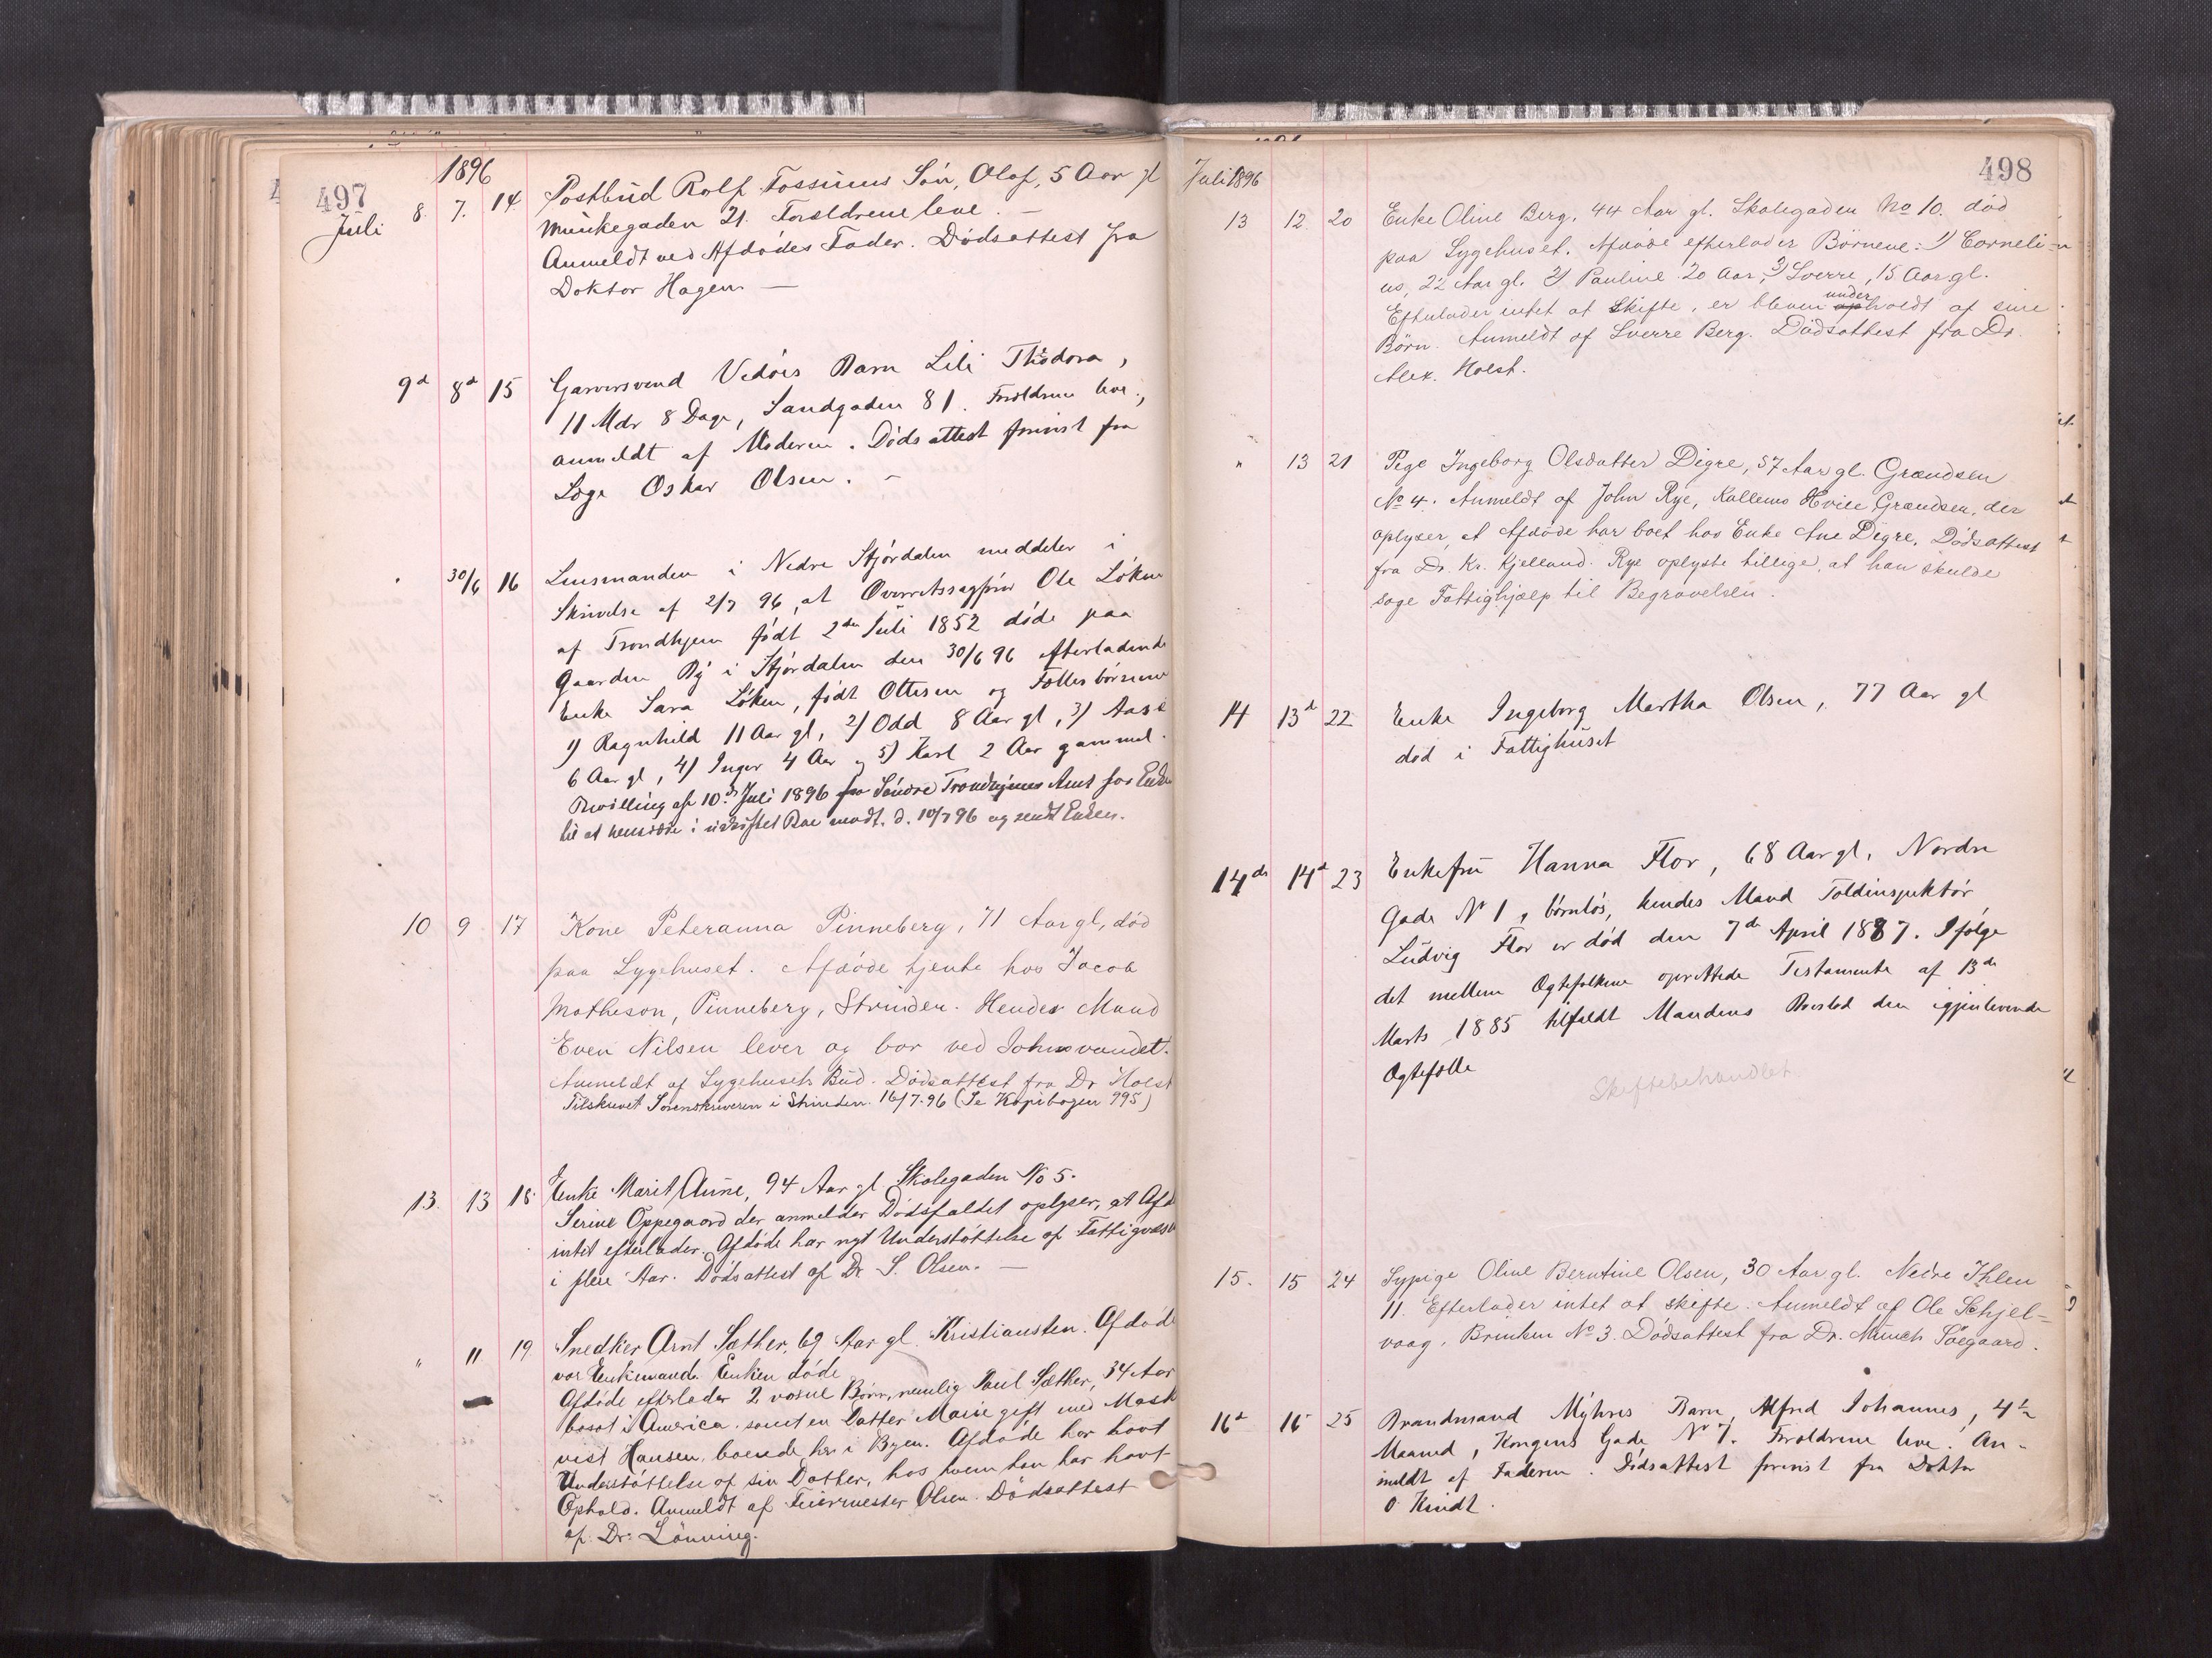 497
1896
Juli
8. 7. 14. Postbud Rolf Fossums Søn, Olaf, 5 Aar gl
Munkegaden 21. Forældrene leve. —
Anmeldt ved Afdødes Fader. Dödsattest fra
Doktor Hagen —
9d 8d 15 Garversvend Barn Lili Theodora,
11 Mdr 8 Dage, Sandgaden 81. Forældrene leve,
anmeldt af Moderen. Dödsattest forevist fra
Læge Oskar Olsen. —
30/6 16 Lensmanden i Nedre Stjördalen meddeler i
Skrivelse af 2/7 96, at Overretssagfører Ole Löken
af Trondhjem födt 2den Juli 1852 döde paa
Gaarden By i Stjördalen den 30/6 96 efterladende
Enke Sara Löken, födt Ottesen og Fællesbörnene
1) Ragnhild 11 Aar gl, 2) Odd 8 Aar gl, 3) Aase
6 Aar gl, 4) Inger 4 Aar og 5) Karl 2 Aar gammel.
Bevilling af 10de Juli 1896 fra Söndre Trondhjems Amt for Enken
til at hensidde i uskiftet Bo modt. d. 10/7 96 og sendt Enken.
10 9 17 Kone Peteranna Pinneberg, 71 Aar gl, död
paa Sygehuset. Afdöde tjente hos Jacob
Matheson, Pinneberg, Strinden. Hendes Mand
Even Nilsen lever og bor ved Johnsvandet.
Anmeldt af Sygehusets Bud. Dödsattest fra Dr Holst
Tilskrevet Sorenskriveren i Strinden 16/7-96 (Se Kopibogen 995)
13. 13 18 Enke Marit Aune, 94 Aar gl. Skolegaden No 5.
Serine Oppegaard der anmelder Dödsfaldet oplyser, at Afd
intet efterlader. Afdöde har nydt Understöttelse af Fattigvæsen
i flere Aar. Dödsattest af Dr S. Olsen. —
" 11 19. Snedker Arnt Sæther, 69 Aar gl. Kristiansten. Afdöde
var Enkemand. Enken döde
Afdöde efterlader 2 voxne Börn, nemlig Paul Sæther, 34 Aar
bosat i America samt en Datter Marie gift med Mask
vist Hansen, boende her i Byen. Afdöde har havt
Understöttelse af sin Datter, hos hvem han har havt
Ophold. Anmeldt af Feiermester Olsen. Dödsattest
af Dr. Lönning.
498
Juli 1896
13 12 20 Enke Oline Berg, 44 Aar gl. Skolegaden No 10. död
paa Sygehuset. Afdöde efterlader Börnene: 1) Corneli-
us, 22 Aar gl. 2) Pauline 20 Aar, 3) Sverre, 15 Aar gl.
under
Efterlader intet at skifte, er bleven opholdt af sine
Börn. Anmeldt af Sverre Berg. Dödsattest fra Dr.
Alex. Holst.
" 13 21 Pige Ingeborg Olsdatter Digre, 57 Aar gl. Grændsen
No 4. Anmeldt af John Rye, Kallems Hvile Grændsen, der
oplyser, at Afdöde har boet hos Enke Ane Digre. Dödsattest
fra Dr. Kr. Kjelland. Rye oplyste tillige, at han skulde
søge Fattighjælp til Begravelsen.
14 13d 22 Enke Ingeborg Martha Olsen, 77 Aar gl
död i Fattighuset
14de 14d 23 Enkefru Hanna Flor, 68 Aar gl, Nordre
Gade No 1, börnlös, hendes Mand Toldinspektör
Ludvig Flor er död den 7de April 1887. Ifölge
det mellem Ægtefolkene oprettede Testamente af 13de
Marts 1885 tilfaldt Mandens Boeslod den igjenlevende
Ægtefælle
Skiftebehandlet
15. 15 24 Sypige Oline Berntine Olsen, 30 Aar gl. Nedre Ihlen
11. Efterlader intet at skifte. Anmeldt af Ole Schjel=
vaag, Brinken No 3. Dödsattest fra Dr. Münch Söegaard.
16d 16 25 Brandmand Myhres Barn, Alfred Johannes, 4½
Maaned, Kongens Gade No 7. Forældrene leve. An-
meldt af Faderen. Dödsattest forevist fra Doktor
O Kindt.